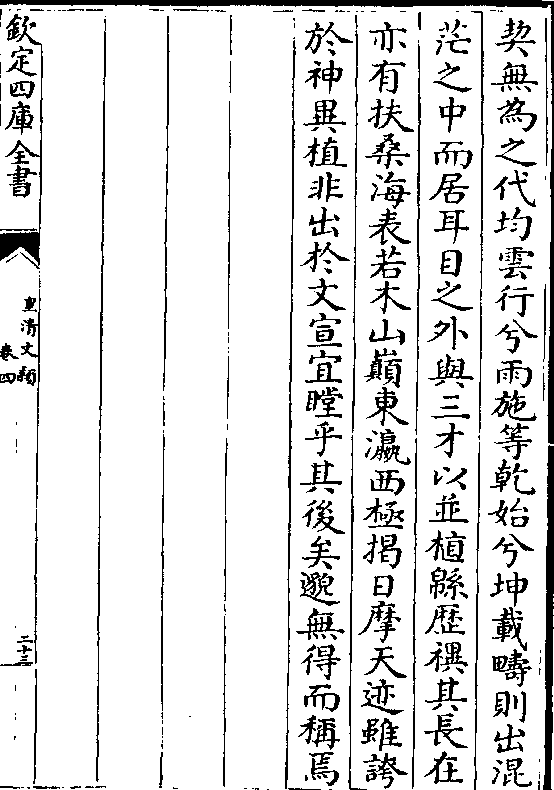 契無為之代均雲行兮雨施等乾始兮坤載疇則出混
茫之中而居耳目之外與三才以並植緜歷禩其長在
亦有扶桑海表若木山巔東瀛西極揭日摩天迹雖誇
於神異植非出於文宣宜瞠乎其後矣邈無得而稱焉
欽定四庫全書
皇清文穎
卷四
二十三